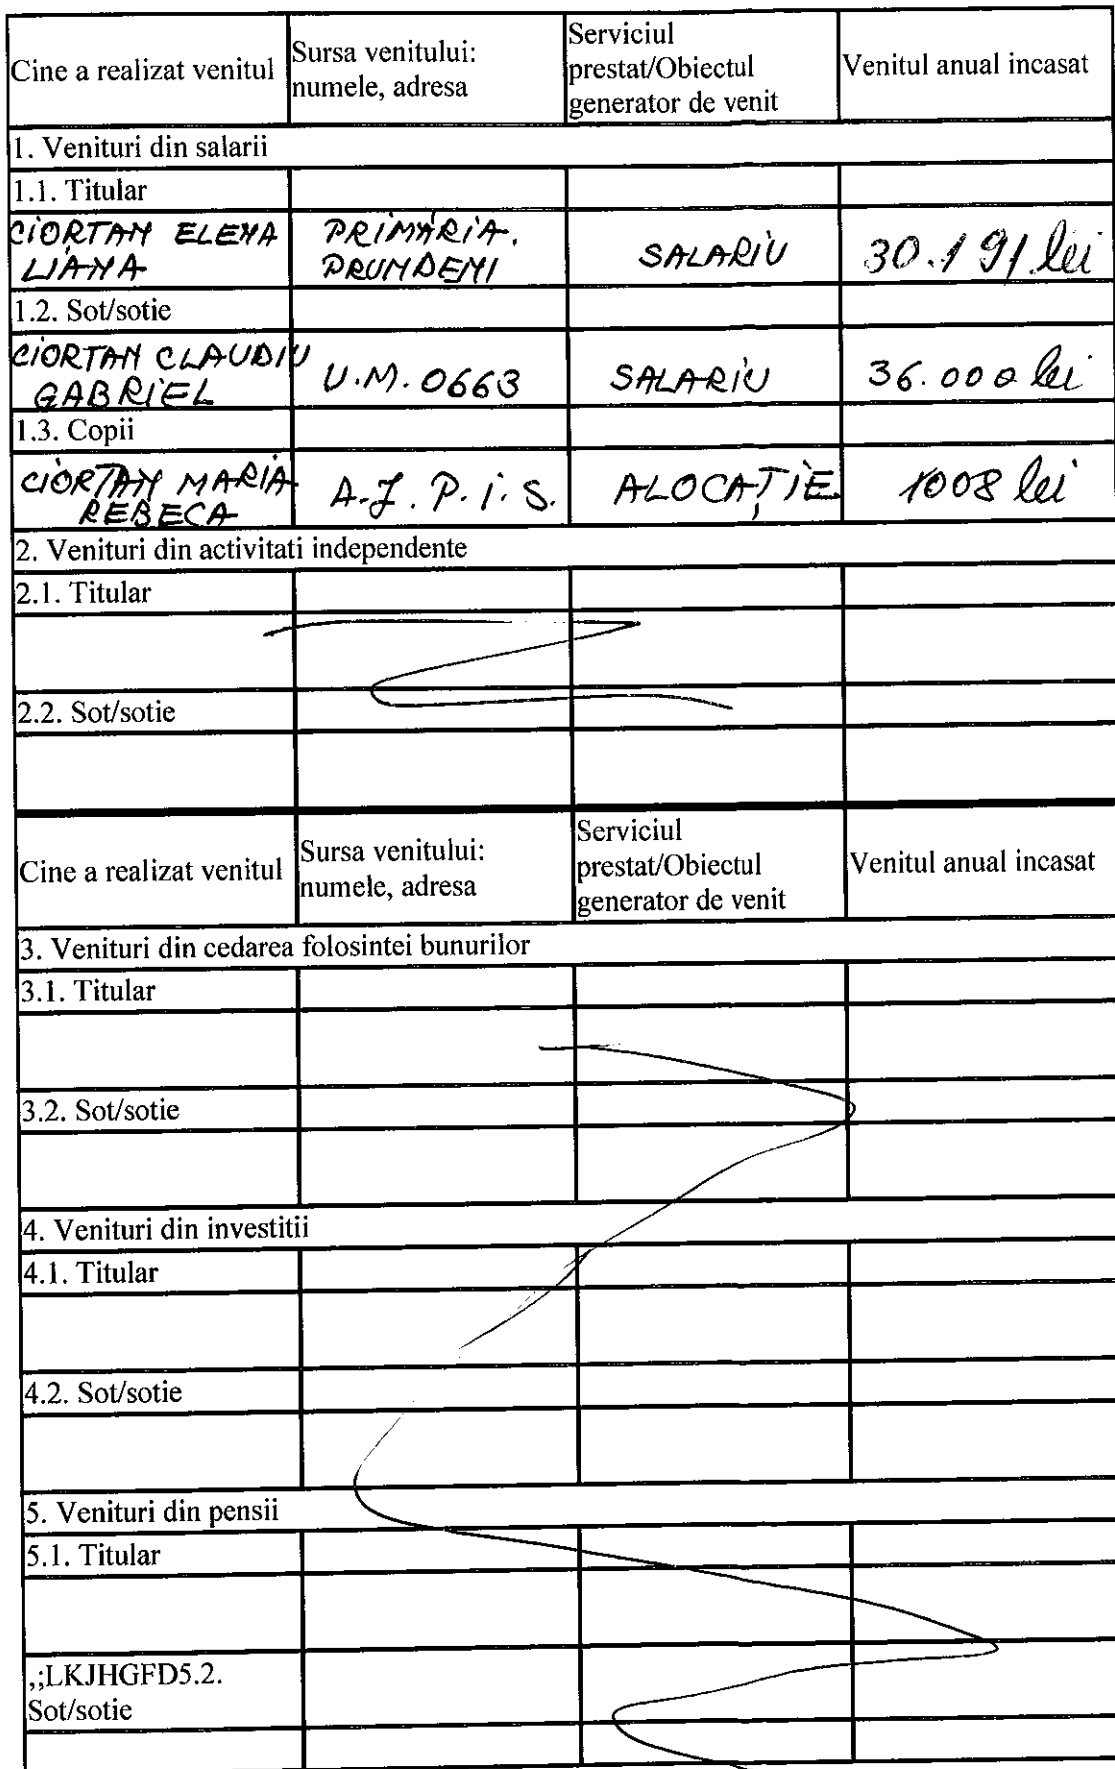 Cine a realizat venitul
Sursa venitului:
numele, adresa
Serviciul
prestat/Obiectul
generator de venit
Venitul anual incasat
1. Venituri din salarii
1.1. Titular
CIORTAN ELENA
LIANA
PRIMĂRIA.
PRUNDENI
SALARIU
30.191 lei
1.2. Sot/sotie
CIORTAN CLAUDIU
GABRIEL
U.M. 0663
SALARIU
36.000 lei
1.3. Copii
CIORTAN MARIA
REBECA
A.J.P.I.S.
ALOCAȚIE
1008 lei
2. Venituri din activitati independente
2.1. Titular
2.2. Sot/sotie
Cine a realizat venitul
Sursa venitului:
numele, adresa
Serviciul
prestat/Obiectul
generator de venit
Venitul anual incasat
3. Venituri din cedarea folosintei bunurilor
3.1. Titular
3.2. Sot/sotie
4. Venituri din investitii
4.1. Titular
4.2. Sot/sotie
5. Venituri din pensii
5.1. Titular
,;LKJHGFD5.2.
Sot/sotie